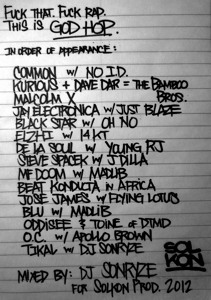 FUCK THAT. FUCK RAP.
THIS IS GOD HOP.
IN ORDER OF APPEARANCE:
COMMON w/ NO I.D.
KURIOUS + DAVE DAR = THE BAMBOO BROS.
MALCOLM X
JAY ELECTRONICA w/ JUST BLAZE
BLACK STAR w/ OH NO
ELZHI w/ 14 KT
DE LA SOUL w/ YOUNG RJ
STEVE SPACEK w/ J DILLA
MF DOOM w/ MADLIB
BEAT KONDUCTA IN AFRICA
JOSÉ JAMES w/ FLYING LOTUS
BLU w/ MADLIB
ODDISEE & TOINE OF DTMD
O.C. w/ APOLLO BROWN
TIKAL w/ DJ SONRYZE
SOL
KON
MIXED BY: DJ SONRYZE
FOR SOLKON PROD. 2012